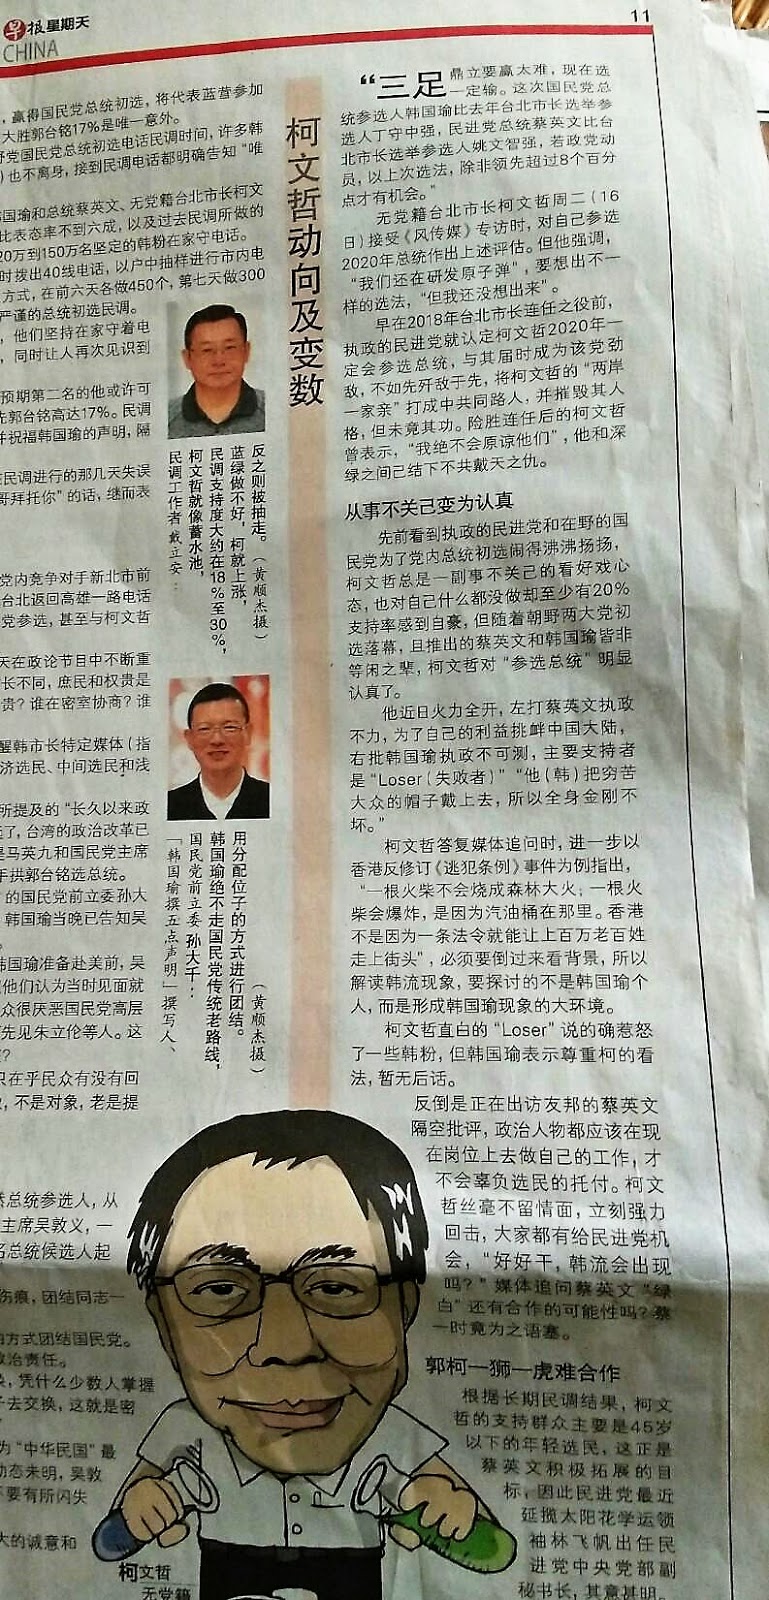 早报星期天
CHINA
11
，赢得国民党总统初选，将代表蓝营参加
大胜郭台铭17%是唯一意外。
党国民党总统初选电话民调时间，许多韩
也不离身，接到民调电话都明确告知“唯
国瑜和总统蔡英文、无党籍台北市长柯文
比表态率不到六成，以及过去民调所做的
20万到150万名坚定的韩粉在家守电话。
时拨出40线电话，以户中抽样进行市内电
方式，在前六天各做450个，第七天做300
严谨的总统初选民调。
，他们坚持在家守着电
，同时让人再次见识到
预期第二名的他或许可
先郭台铭高达17%。民调
并祝福韩国瑜的声明，隔
在民调进行的那几天失误
哥拜托你”的话，继而表
党内竞争对手新北市前
台北返回高雄一路电话
党参选，甚至与柯文哲
天在政论节目中不断重
长不同，庶民和权贵是
贵？谁在密室协商？谁
醒韩市长特定媒体（指
济选民、中间选民和浅
所提及的“长久以来政
了，台湾的政治改革已
是马英九和国民党主席
手拱郭台铭选总统。
的国民党前立委孙大
韩国瑜当晚已告知吴
韩国瑜准备赴美前，吴
他们认为当时见面就
众很厌恶国民党高层
先见朱立伦等人。这
只在乎民众有没有回
，不是对象，老是提
总统参选人，从
主席吴敦义，一
名总统候选人起
伤痕，团结同志一
方式团结国民党。
政治责任。
，凭什么少数人掌握
去交换，这就是密
为“中华民国”最
动态未明，吴敦
要有所闪失
大的诚意和
民调工作者戴立安：
柯文哲就像蓄水池，
民调支持度大约在18%至30%，
蓝绿做不好，柯就上涨，
反之则被抽走。（黄顺杰摄）
「韩国瑜撰五点声明」撰写人、
国民党前立委孙大千：
韩国瑜绝不走国民党传统老路线，
用分配位子的方式进行团结。
（黄顺杰摄）
柯文哲动向及变数
“三足鼎立要赢太难，现在选
一定输。这次国民党总
统参选人韩国瑜比去年台北市长选举参
选人丁守中强，民进党总统蔡英文比台
北市长选举参选人姚文智强，若政党动
员，以上次选法，除非领先超过8个百分
点才有机会。”
无党籍台北市长柯文哲周二（16
日）接受《风传媒》专访时，对自己参选
2020年总统作出上述评估。但他强调，
“我们还在研发原子弹”，要想出不一
样的选法，“但我还没想出来”。
早在2018年台北市长连任之役前，
执政的民进党就认定柯文哲2020年一
定会参选总统，与其届时成为该党劲
敌，不如先歼敌于先，将柯文哲的“两岸
一家亲”打成中共同路人，并摧毁其人
格，但未竟其功。险胜连任后的柯文哲
曾表示，“我绝不会原谅他们”，他和深
绿之间已结下不共戴天之仇。
从事不关己变为认真
先前看到执政的民进党和在野的国
民党为了党内总统初选闹得沸沸扬扬，
柯文哲总是一副事不关己的看好戏心
态，也对自己什么都没做却至少有20%
支持率感到自豪，但随着朝野两大党初
选落幕，且推出的蔡英文和韩国瑜皆非
等闲之辈，柯文哲对“参选总统”明显
认真了。
他近日火力全开，左打蔡英文执政
不力，为了自己的利益挑衅中国大陆，
右批韩国瑜执政不可测，主要支持者
是“Loser（失败者）”“他（韩）把穷苦
大众的帽子戴上去，所以全身金刚不
坏。”
柯文哲答复媒体追问时，进一步以
香港反修订《逃犯条例》事件为例指出，
“一根火柴不会烧成森林大火；一根火
柴会爆炸，是因为汽油桶在那里。香港
不是因为一条法令就能让上百万老百姓
走上街头”，必须要倒过来看背景，所以
解读韩流现象，要探讨的不是韩国瑜个
人，而是形成韩国瑜现象的大环境。
柯文哲直白的“Loser”说的确惹怒
了一些韩粉，但韩国瑜表示尊重柯的看
法，暂无后话。
反倒是正在出访友邦的蔡英文
隔空批评，政治人物都应该在现
在岗位上去做自己的工作，才
不会辜负选民的托付。柯文
哲丝毫不留情面，立刻强力
回击，大家都有给民进党机
会，“好好干，韩流会出现
吗？”媒体追问蔡英文“绿
白”还有合作的可能性吗？蔡
一时竟为之语塞。
郭柯一狮一虎难合作
根据长期民调结果，柯文
哲的支持群众主要是45岁
以下的年轻选民，这正是
蔡英文积极拓展的目
标，因此民进党最近
延揽太阳花学运领
袖林飞帆出任民
进党中央党部副
秘书长，其意甚明。
柯文哲
无党籍